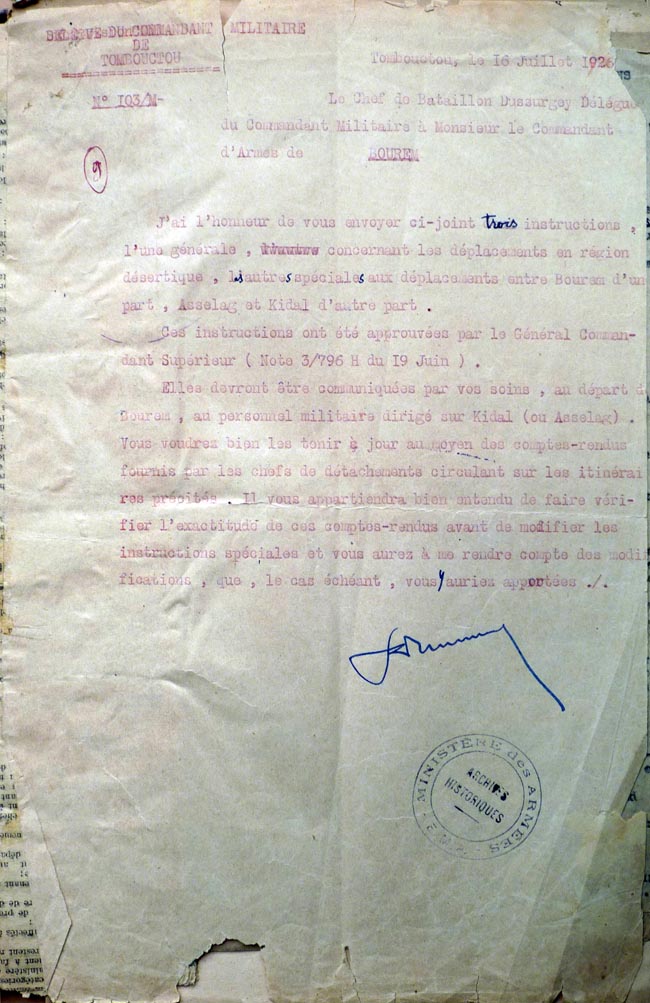 MILITAIRE
DE
TOMBOUCTOU
Tombouctou, le 16 Juillet 1926
N° 103/M-
Le Chef de Bataillon Dussurgey Délégué
du Commandant Militaire à Monsieur le Commandant
d'Armes de BOUREM
9
J'ai l'honneur de vous envoyer ci-joint trois instructions ,
l'une générale , concernant les déplacements en région
désertique , ls autres spéciales aux déplacements entre Bourem d'un
part , Asselag et Kidal d'autre part .
Ces instructions ont été approuvées par le Général Comman-
dant Supérieur ( Note 3/796 H du 19 Juin ) .
Elles devront être communiquées par vos soins , au départ d
Bourem , au personnel militaire dirigé sur Kidal (ou Asselag) .
Vous voudrez bien les tenir à jour au moyen des comptes-rendus
fournis par les chefs de détachements circulant sur les itinérai
res précités . Il vous appartiendra bien entendu de faire véri-
fier l'exactitude de ces comptes-rendus avant de modifier les
instructions spéciales et vous aurez à me rendre compte des modi
fications , que , le cas échéant , vous y auriez apportées ./.
MINISTÈRE des ARMÉES
ARCHIVES
HISTORIQUES